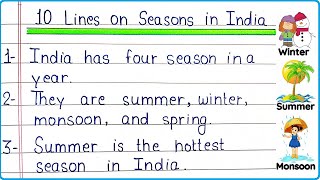 10 Lines on Seasons in India
1- India has four season in a
year.
2- They are summer, winter,
monsoon, and spring.
3- Summer is the hottest
season in India.
Winter
Summer
Monsoon